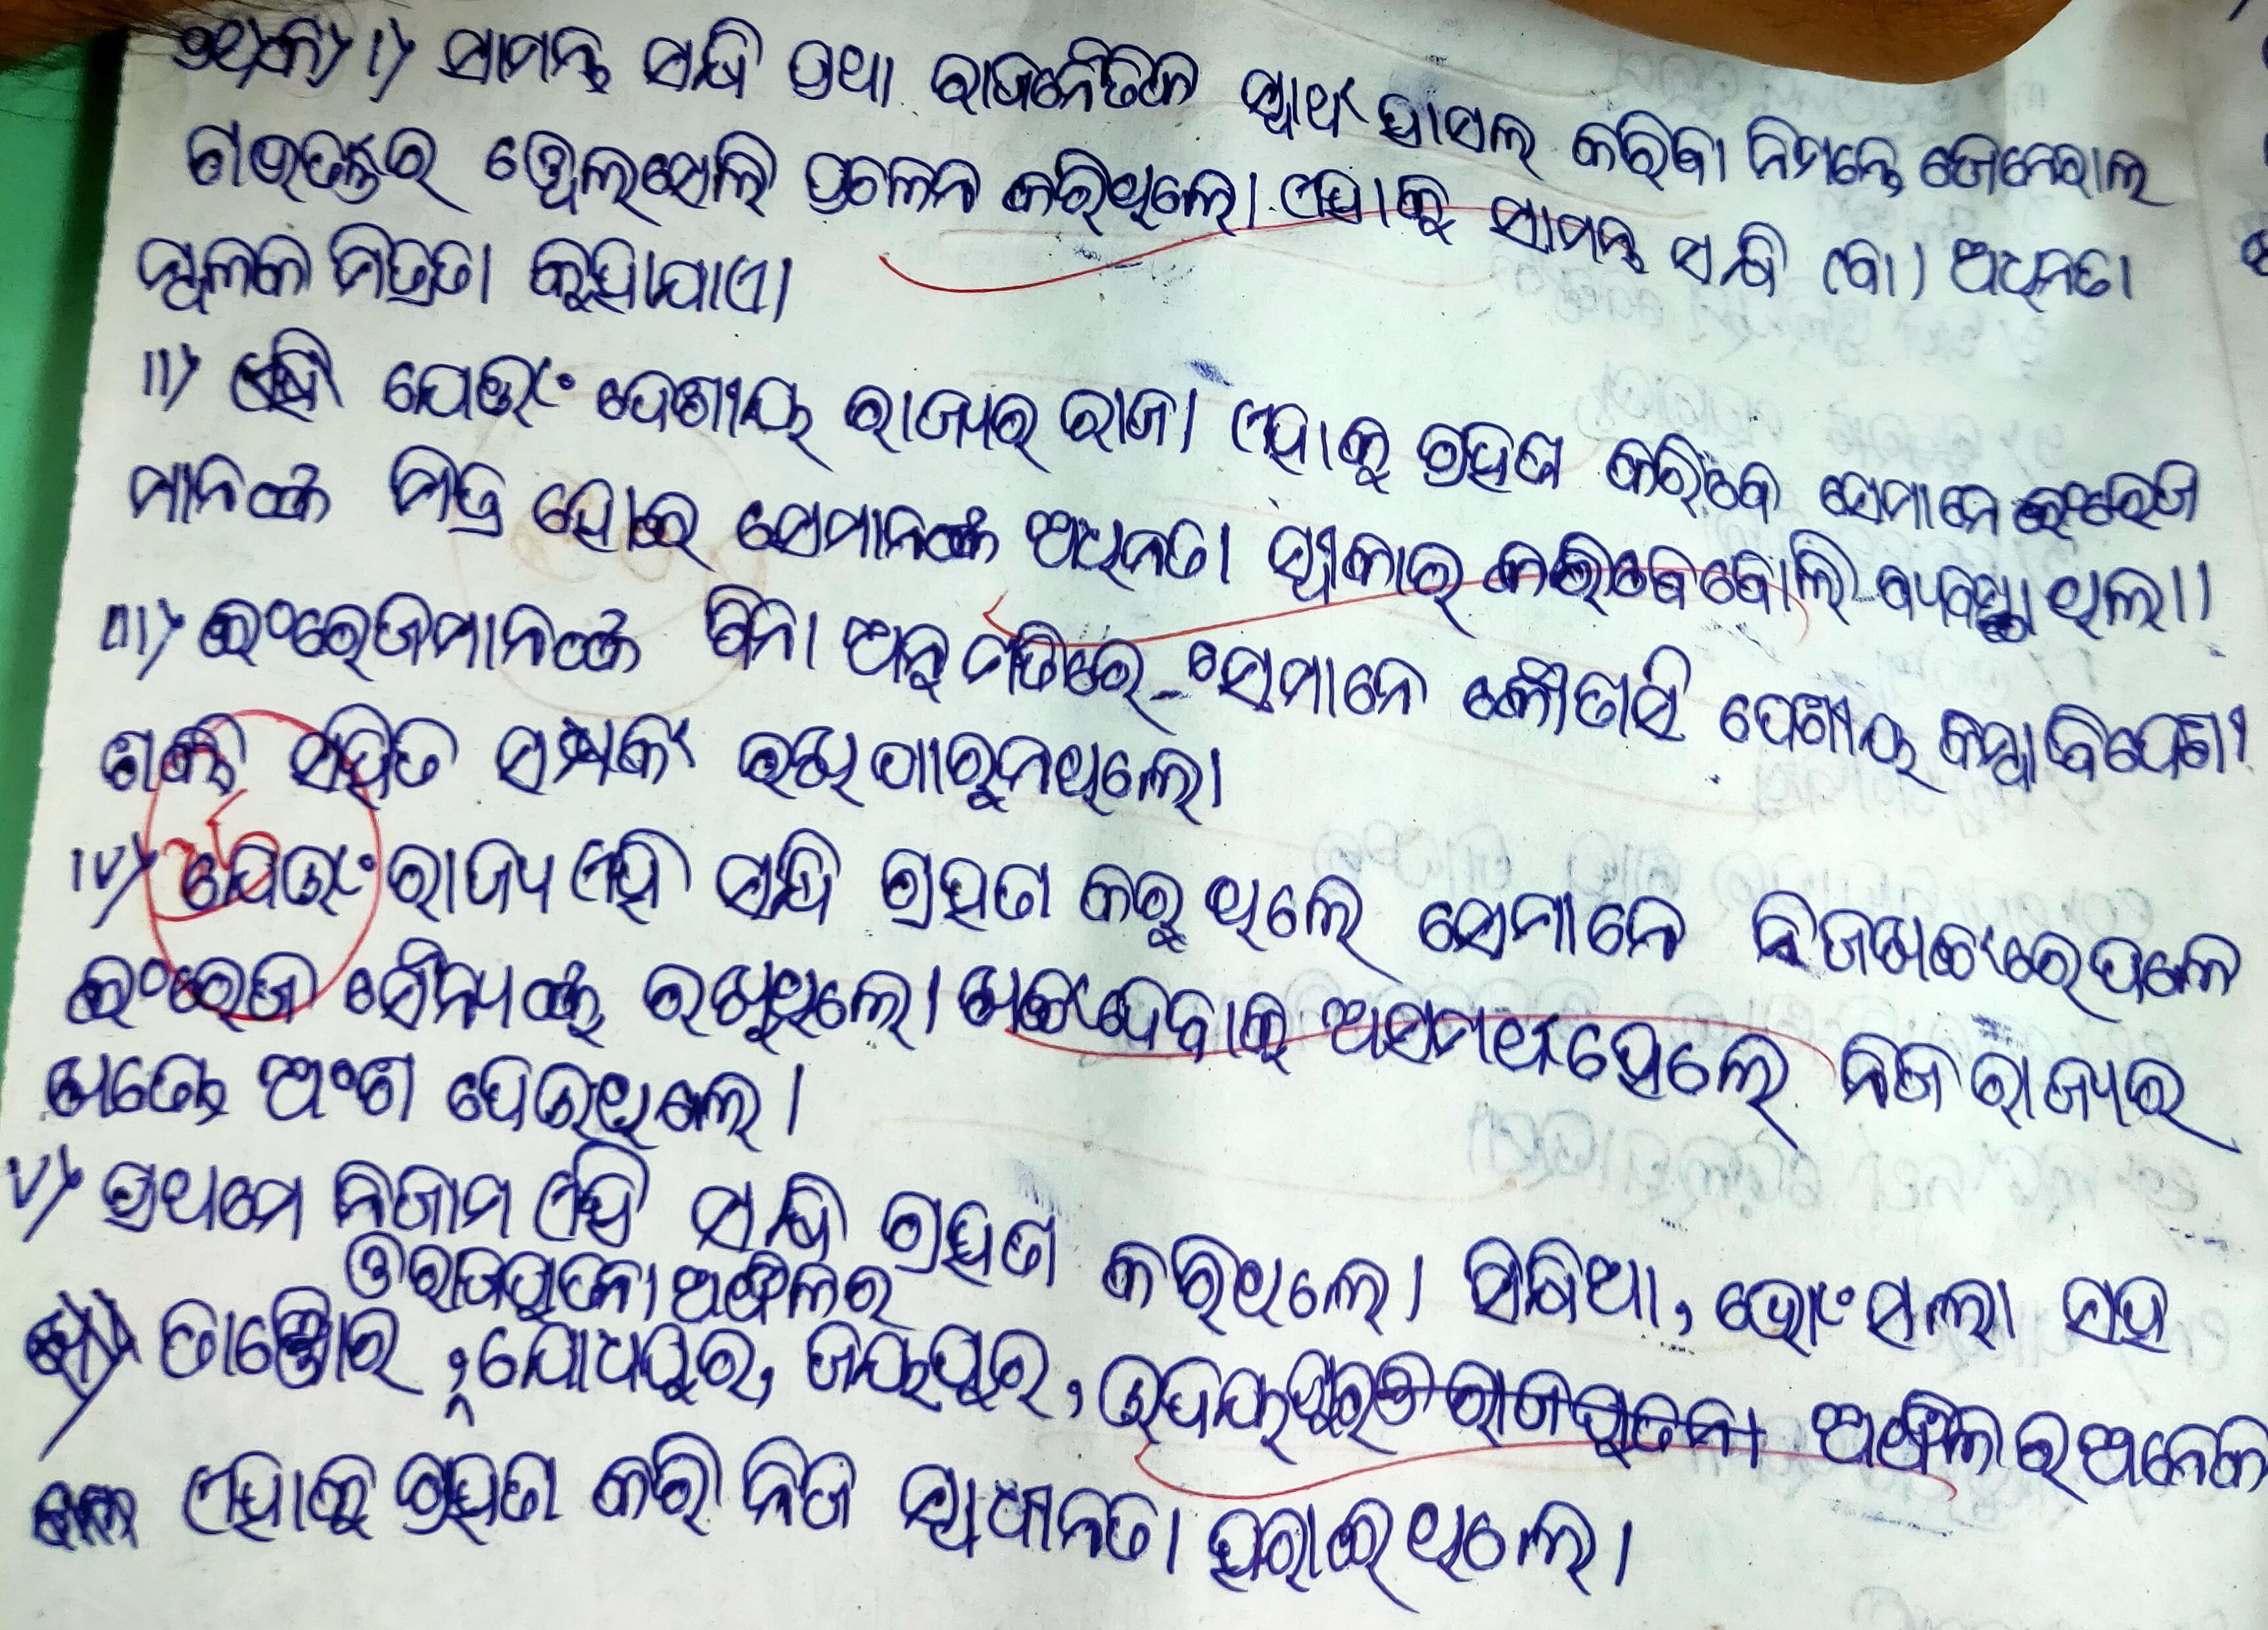 ୭ଥ)କ) i) ସାମନ୍ତ ସନ୍ଧି ପ୍ରଥା ରାଜନୈତିକ ସ୍ୱାର୍ଥ ହାସଲ କରିବା ନିମନ୍ତେ ଜେନେରାଲ
ଗଭର୍ଣ୍ଣର ୱେଲସେଲି ପ୍ରଚଳନ କରିଥିଲେ। ଏହାକୁ ସାମନ୍ତ ସନ୍ଧି (ବା) ଅଧିନତା
ମୂଳକ ମିତ୍ରତା କୁହାଯାଏ।
ii) ଯେଉଁ ଦେଶୀୟ ରାଜ୍ୟର ରାଜା ଏହାକୁ ଗ୍ରହଣ କରିବେ ସେମାନେ ଇଂରେଜ
ମାନଙ୍କ ମିତ୍ର ହୋଇ ସେମାନଙ୍କ ଅଧିନତା ସ୍ୱୀକାର କରିବେ ବୋଲି ବ୍ୟବସ୍ଥା ଥିଲା।
iii) ଇଂରେଜମାନଙ୍କ ବିନା ଅନୁମତିରେ ସେମାନେ କୌଣସି ଦେଶୀୟ କିମ୍ବା ବିଦେଶୀ
ଶକ୍ତି ସହିତ ସମ୍ପର୍କ ରଖିପାରୁନଥିଲେ।
iv) ଯେଉଁ ରାଜ୍ୟ ଏହି ସନ୍ଧି ଗ୍ରହଣ କରୁଥିଲେ ସେମାନେ ନିଜଖର୍ଚ୍ଚରେ ଦଳେ
ଇଂରେଜ ସୈନ୍ୟଙ୍କୁ ରଖୁଥିଲେ। ଖର୍ଚ୍ଚଦେବାକୁ ଅସମର୍ଥ ହେଲେ ନିଜ ରାଜ୍ୟର
ଖଣ୍ଡେ ଅଂଶ ଦେଉଥିଲେ।
v) ପ୍ରଥମେ ନିଜାମ ଏହି ସନ୍ଧି ଗ୍ରହଣ କରିଥିଲେ। ସିନ୍ଧିଆ, ଭୋଂସଲା ସହ
ଓ ରାଜପୁତନା ଅଞ୍ଚଳର
ତାଞ୍ଜୋର, ଯୋଧପୁର, ଜୟପୁର, ଉଦୟପୁର ଓ ରାଜପୁତନା ଅଞ୍ଚଳର ଅନେକ
ଏହାକୁ ଗ୍ରହଣ କରି ନିଜ ସ୍ୱାଧୀନତା ହରାଇଥିଲେ।